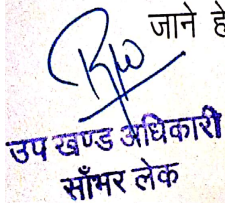 जाने हे
उप खण्ड अधिकारी
साँभर लेक